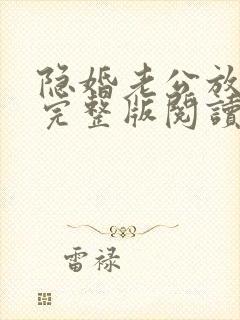 隐婚老公放
完整版閱讀
雷禄